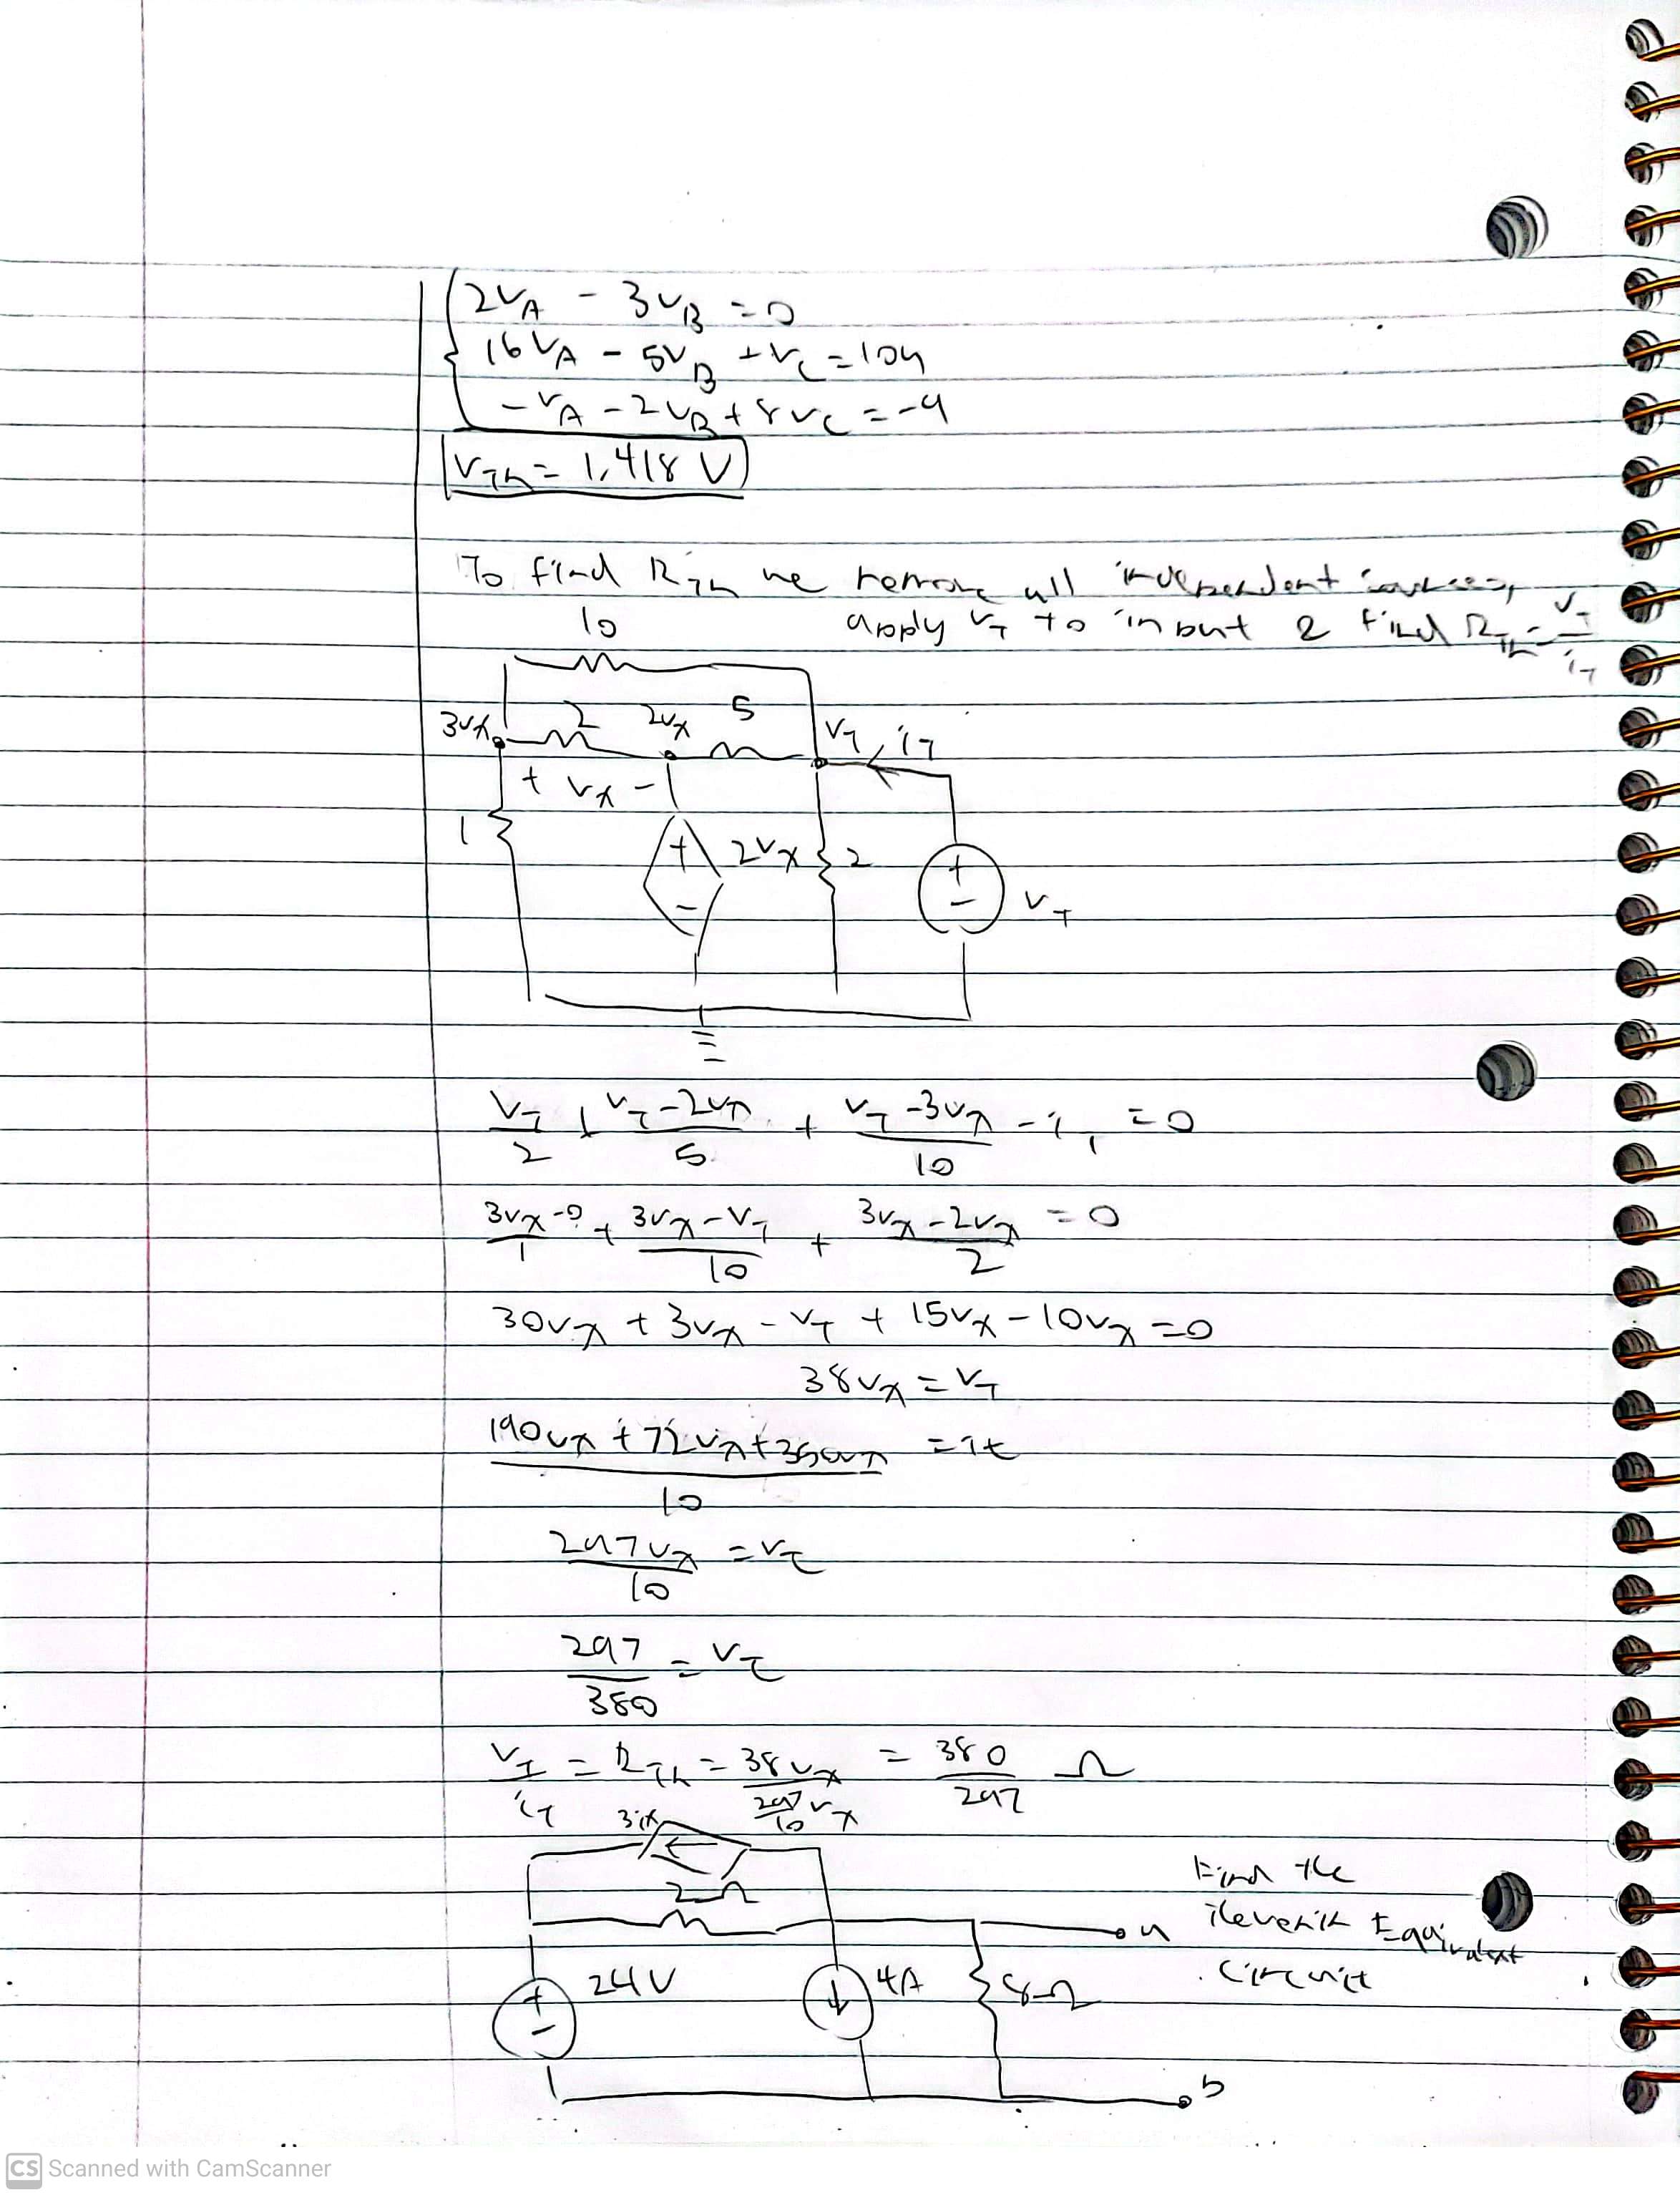 2vA - 3vB = 0
16vA - 5vB + vC = 104
-vA - 2vB + 8vC = -4
vTh = 1,418 V
To find RTh we remove all independent sources,
apply vT to input & find RTh = vT/iT
10
3vx 2 2vx 5 vT iT
+ vx -
1 + 2vx 2 +
- - vT
vT/2 + (vT - 2vx)/5 + (vT - 3vx)/10 - iT = 0
(3vx - 0)/1 + (3vx - vT)/10 + (3vx - 2vx)/2 = 0
30vx + 3vx - vT + 15vx - 10vx = 0
38vx = vT
(190vx + 72vx + 35vx)/10 = it
297vx/10 = vt
297/380 = vt
vT/iT = RTh = 38vx/(297/10 vx) = 380/297 Ω
3ix
2Ω
Find the
Thevenin Equivalent
Circuit
a
24V 4A 8Ω
+
-
b
CS Scanned with CamScanner